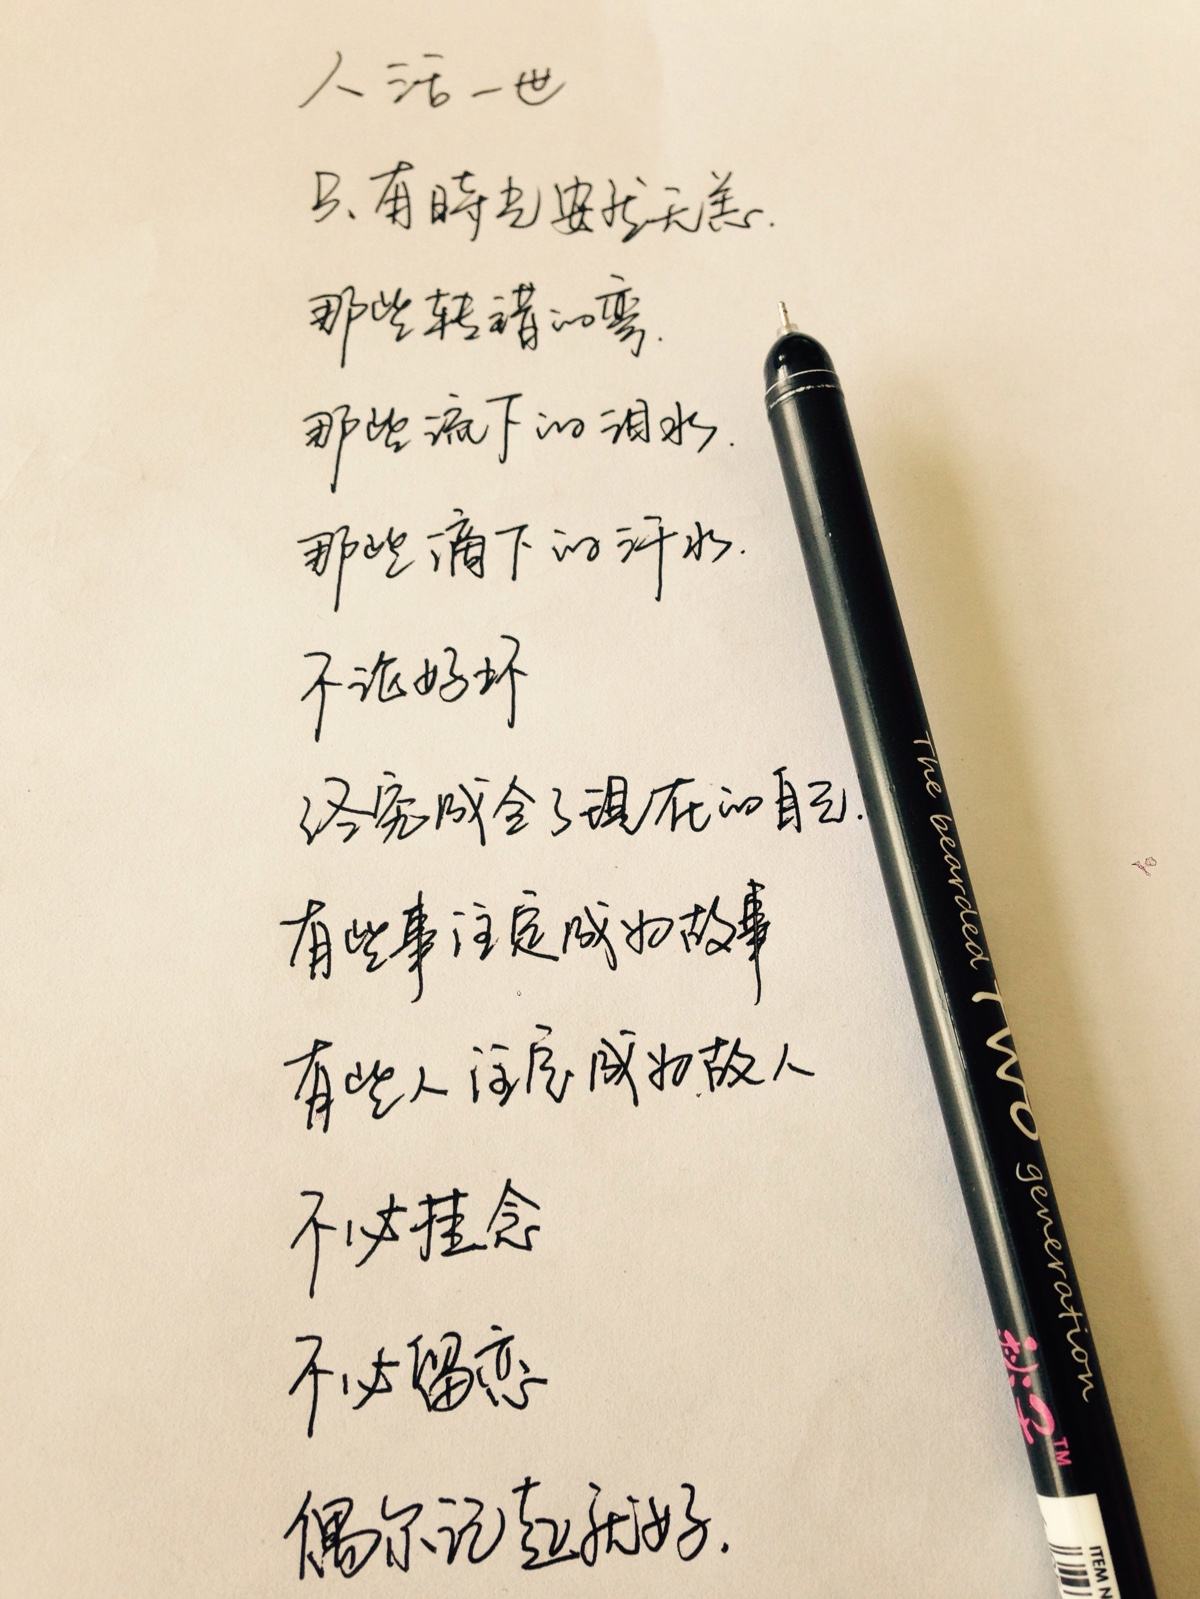 人活一世
只有時光安然无恙.
那些转错的弯.
那些流下的泪水.
那些滴下的汗水.
不论好坏
终究成全了现在的自己.
有些事注定成为故事
有些人注定成为故人
不必挂念
不必留恋
偶尔记起就好.
The bearded Two generation
TM
ITEM N